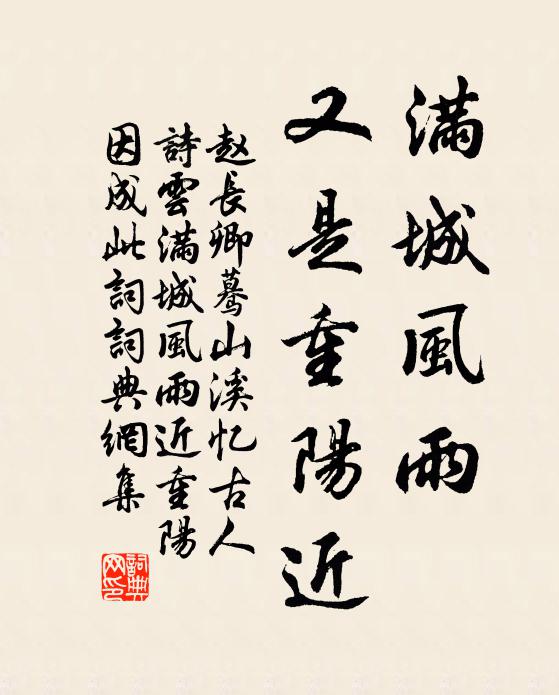 滿城風雨
又是重陽近
赵長卿驀山溪忆古人
詩雲滿城風雨近重陽
因成此詞詞典網集
詞典网印